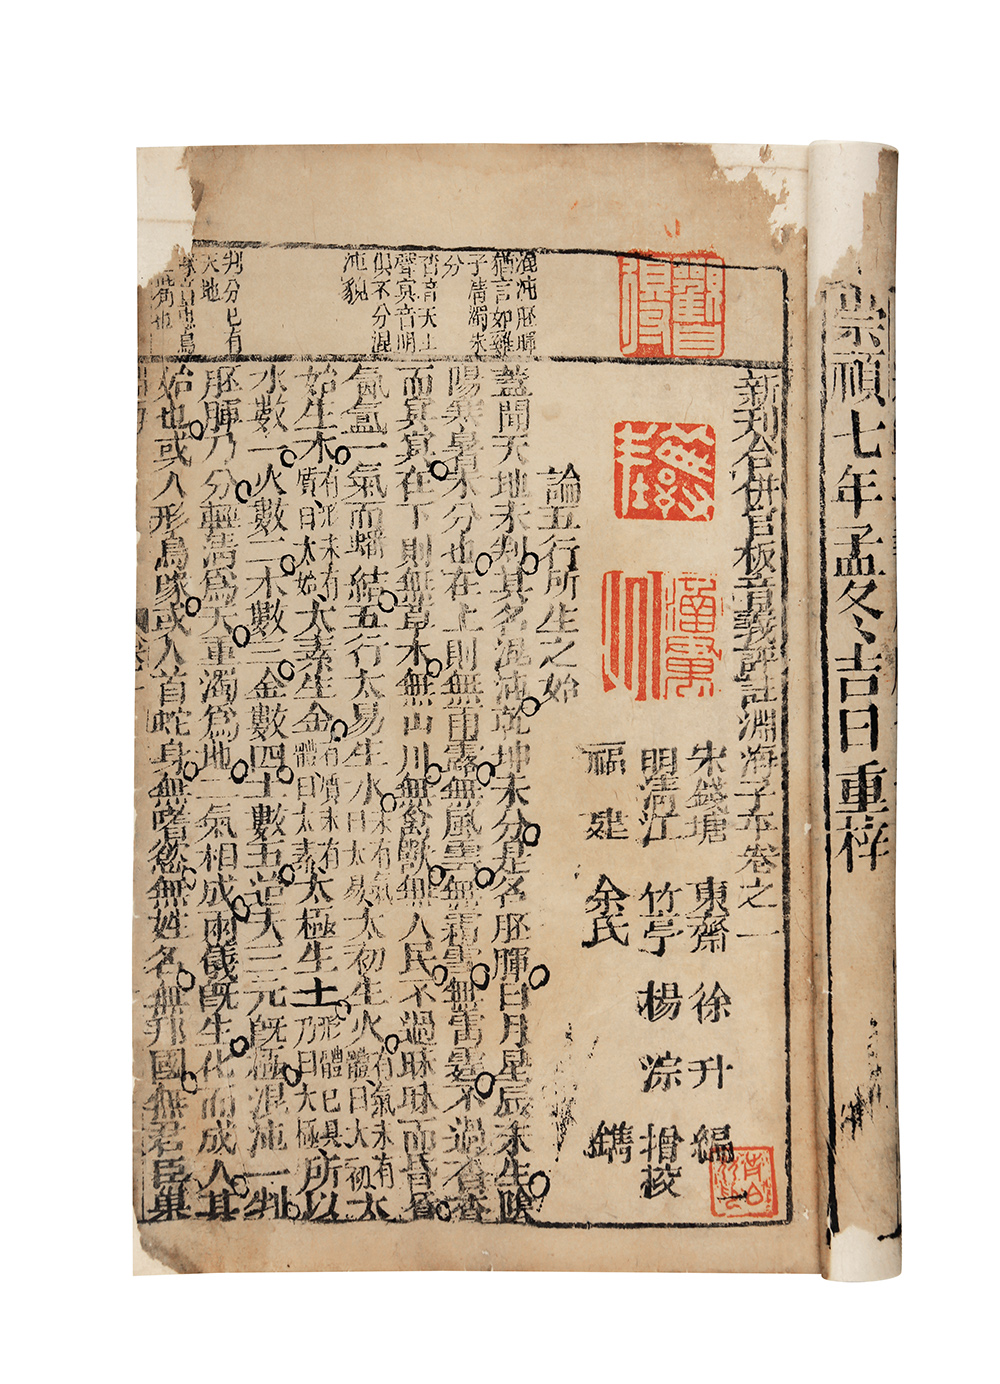 崇禎七年孟冬吉日重梓
混沌胚腪
猶言如雞
子清濁未
分
杳音夭上
聲冥音明
俱不分混
沌貌
判分已有
天地
新刊合併官板音義評註淵海子平卷之一
宋錢塘 東齋 徐升 編
明清江 竹亭 楊淙 增校
福建 余氏 鐫
論五行所生之始
蓋聞天地未判其名混沌乾坤未分是名胚腪日月星辰未生陰
陽寒暑未分也在上則無雨露無風雲無霜雪無雷霆不過杳杳
而冥冥在下則無草木無山川無禽獸無人民不過昧昧而昏昏
氤氳一氣而蟠結五行太易生水未有氣曰太易太初生火有氣未有體曰太初太
始生木有形未有質曰太始太素生金有質未有體曰太素太極生土形體已具乃曰太極所以
水數一火數二木數三金數四土數五迨夫三元旣極混沌一判
胚腪乃分輕清爲天重濁爲地二氣相成兩儀旣生化而成人其
始也或人形鳥喙或人首蛇身無嗜慾無姓名無邦國無君臣巢